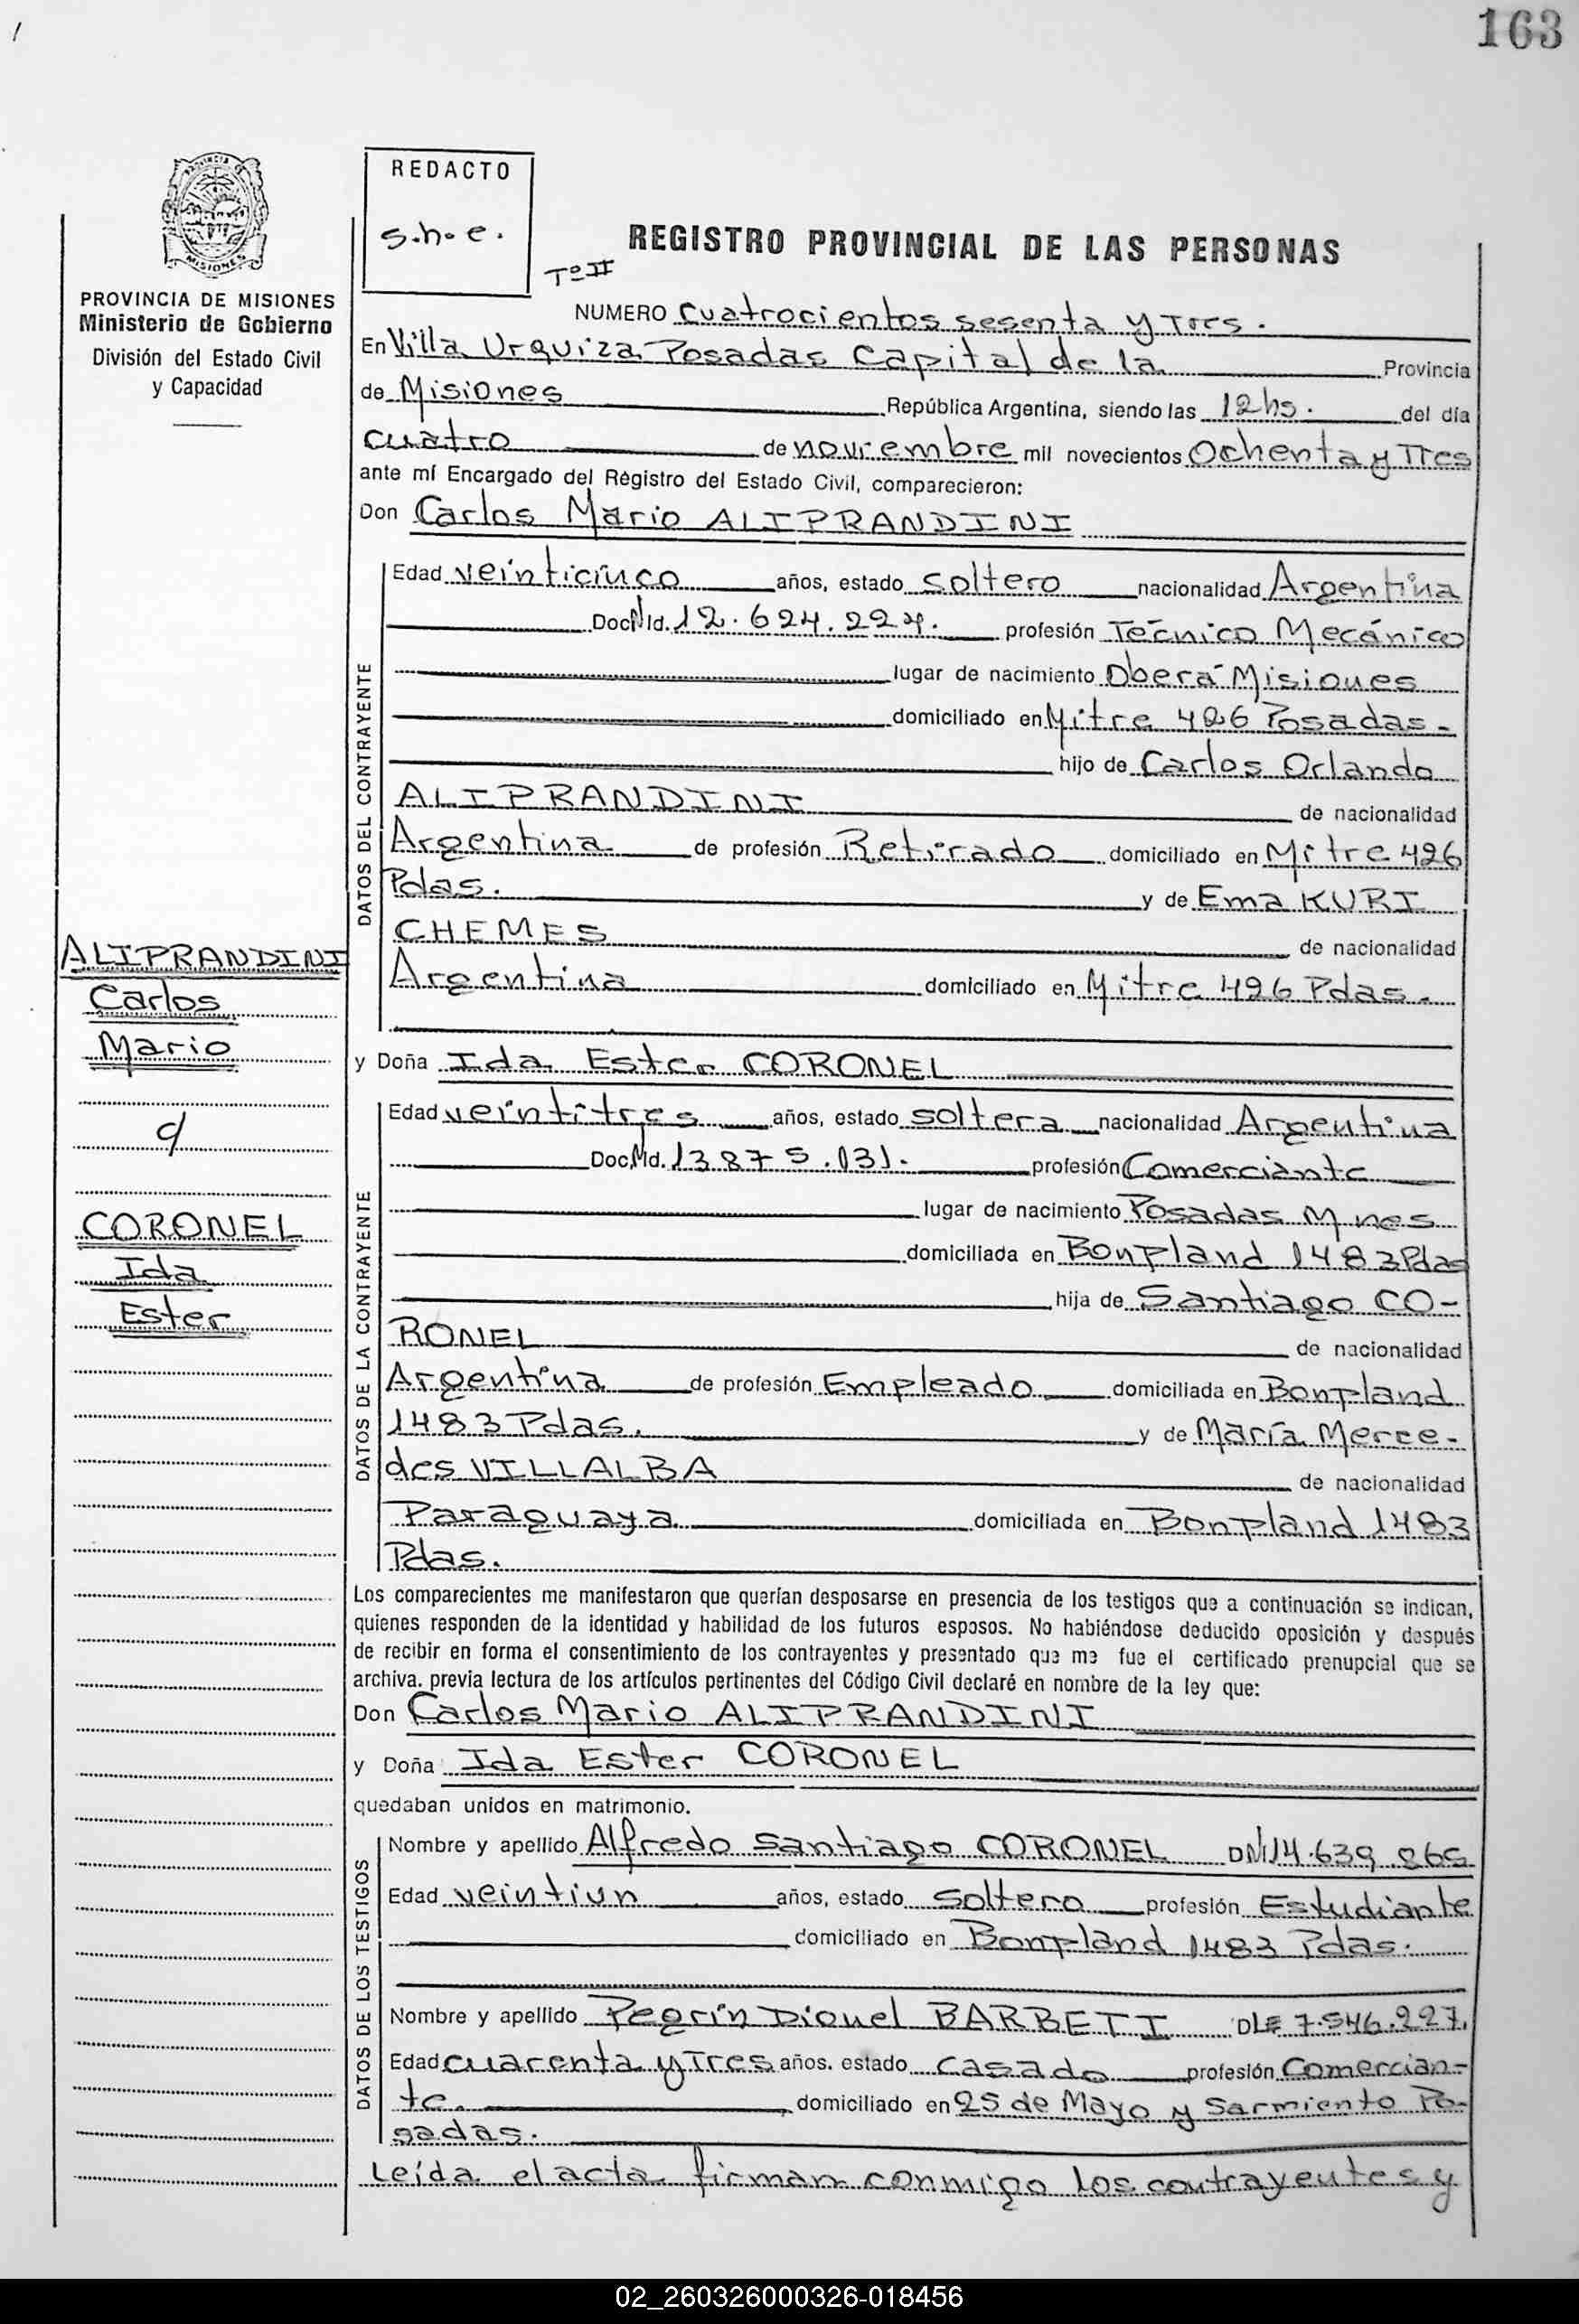 163
REDACTO
s.h.e.
PROVINCIA DE MISIONES
Ministerio de Gobierno
División del Estado Civil
y Capacidad
REGISTRO PROVINCIAL DE LAS PERSONAS
Tº II
NUMERO cuatrocientos sesenta y Tres.
En Villa Urquiza Posadas Capital de la Provincia
de Misiones República Argentina, siendo las 12hs. del día
cuatro de noviembre mil novecientos Ochenta y Tres
ante mí Encargado del Registro del Estado Civil, comparecieron:
Don Carlos Mario ALIPRANDINI
DATOS DEL CONTRAYENTE
Edad veinticinco años, estado soltero nacionalidad Argentina
Doc. Nid. 12.624.224. profesión Técnico Mecánico
lugar de nacimiento Oberá Misiones
domiciliado en Mitre 426 Posadas-
hijo de Carlos Orlando
ALIPRANDINI de nacionalidad
Argentina de profesión Retirado domiciliado en Mitre 426
Pdas. y de Ema KURI
CHEMES de nacionalidad
Argentina domiciliado en Mitre 426 Pdas.
ALIPRANDINI
Carlos
Mario
c/
CORONEL
Ida
Ester
y Doña Ida Ester CORONEL
DATOS DE LA CONTRAYENTE
Edad veintitres años, estado soltera nacionalidad Argentina
Doc. Nid. 13875.131. profesión Comerciante
lugar de nacimiento Posadas Mnes
domiciliada en Bonpland 1483 Pdas
hija de Santiago CO-
RONEL de nacionalidad
Argentina de profesión Empleado domiciliada en Bonpland
1483 Pdas. y de María Merce-
des VILLALBA de nacionalidad
Paraguaya domiciliada en Bonpland 1483
Pdas.
Los comparecientes me manifestaron que querían desposarse en presencia de los testigos que a continuación se indican,
quienes responden de la identidad y habilidad de los futuros esposos. No habiéndose deducido oposición y después
de recibir en forma el consentimiento de los contrayentes y presentado que me fue el certificado prenupcial que se
archiva. previa lectura de los artículos pertinentes del Código Civil declaré en nombre de la ley que:
Don Carlos Mario ALIPRANDINI
y Doña Ida Ester CORONEL
quedaban unidos en matrimonio.
DATOS DE LOS TESTIGOS
Nombre y apellido Alfredo Santiago CORONEL DNI 14.639.865
Edad veintiun años, estado soltero profesión Estudiante
domiciliado en Bonpland 1483 Pdas.
Nombre y apellido Pegrin Dionel BARBETI DLE 7.546.227.
Edad cuarenta y Tres años. estado casado profesión Comercian-
te. domiciliado en 25 de Mayo y Sarmiento Po-
sadas.
Leída el acta firman conmigo los contrayentes y
02_260326000326-018456